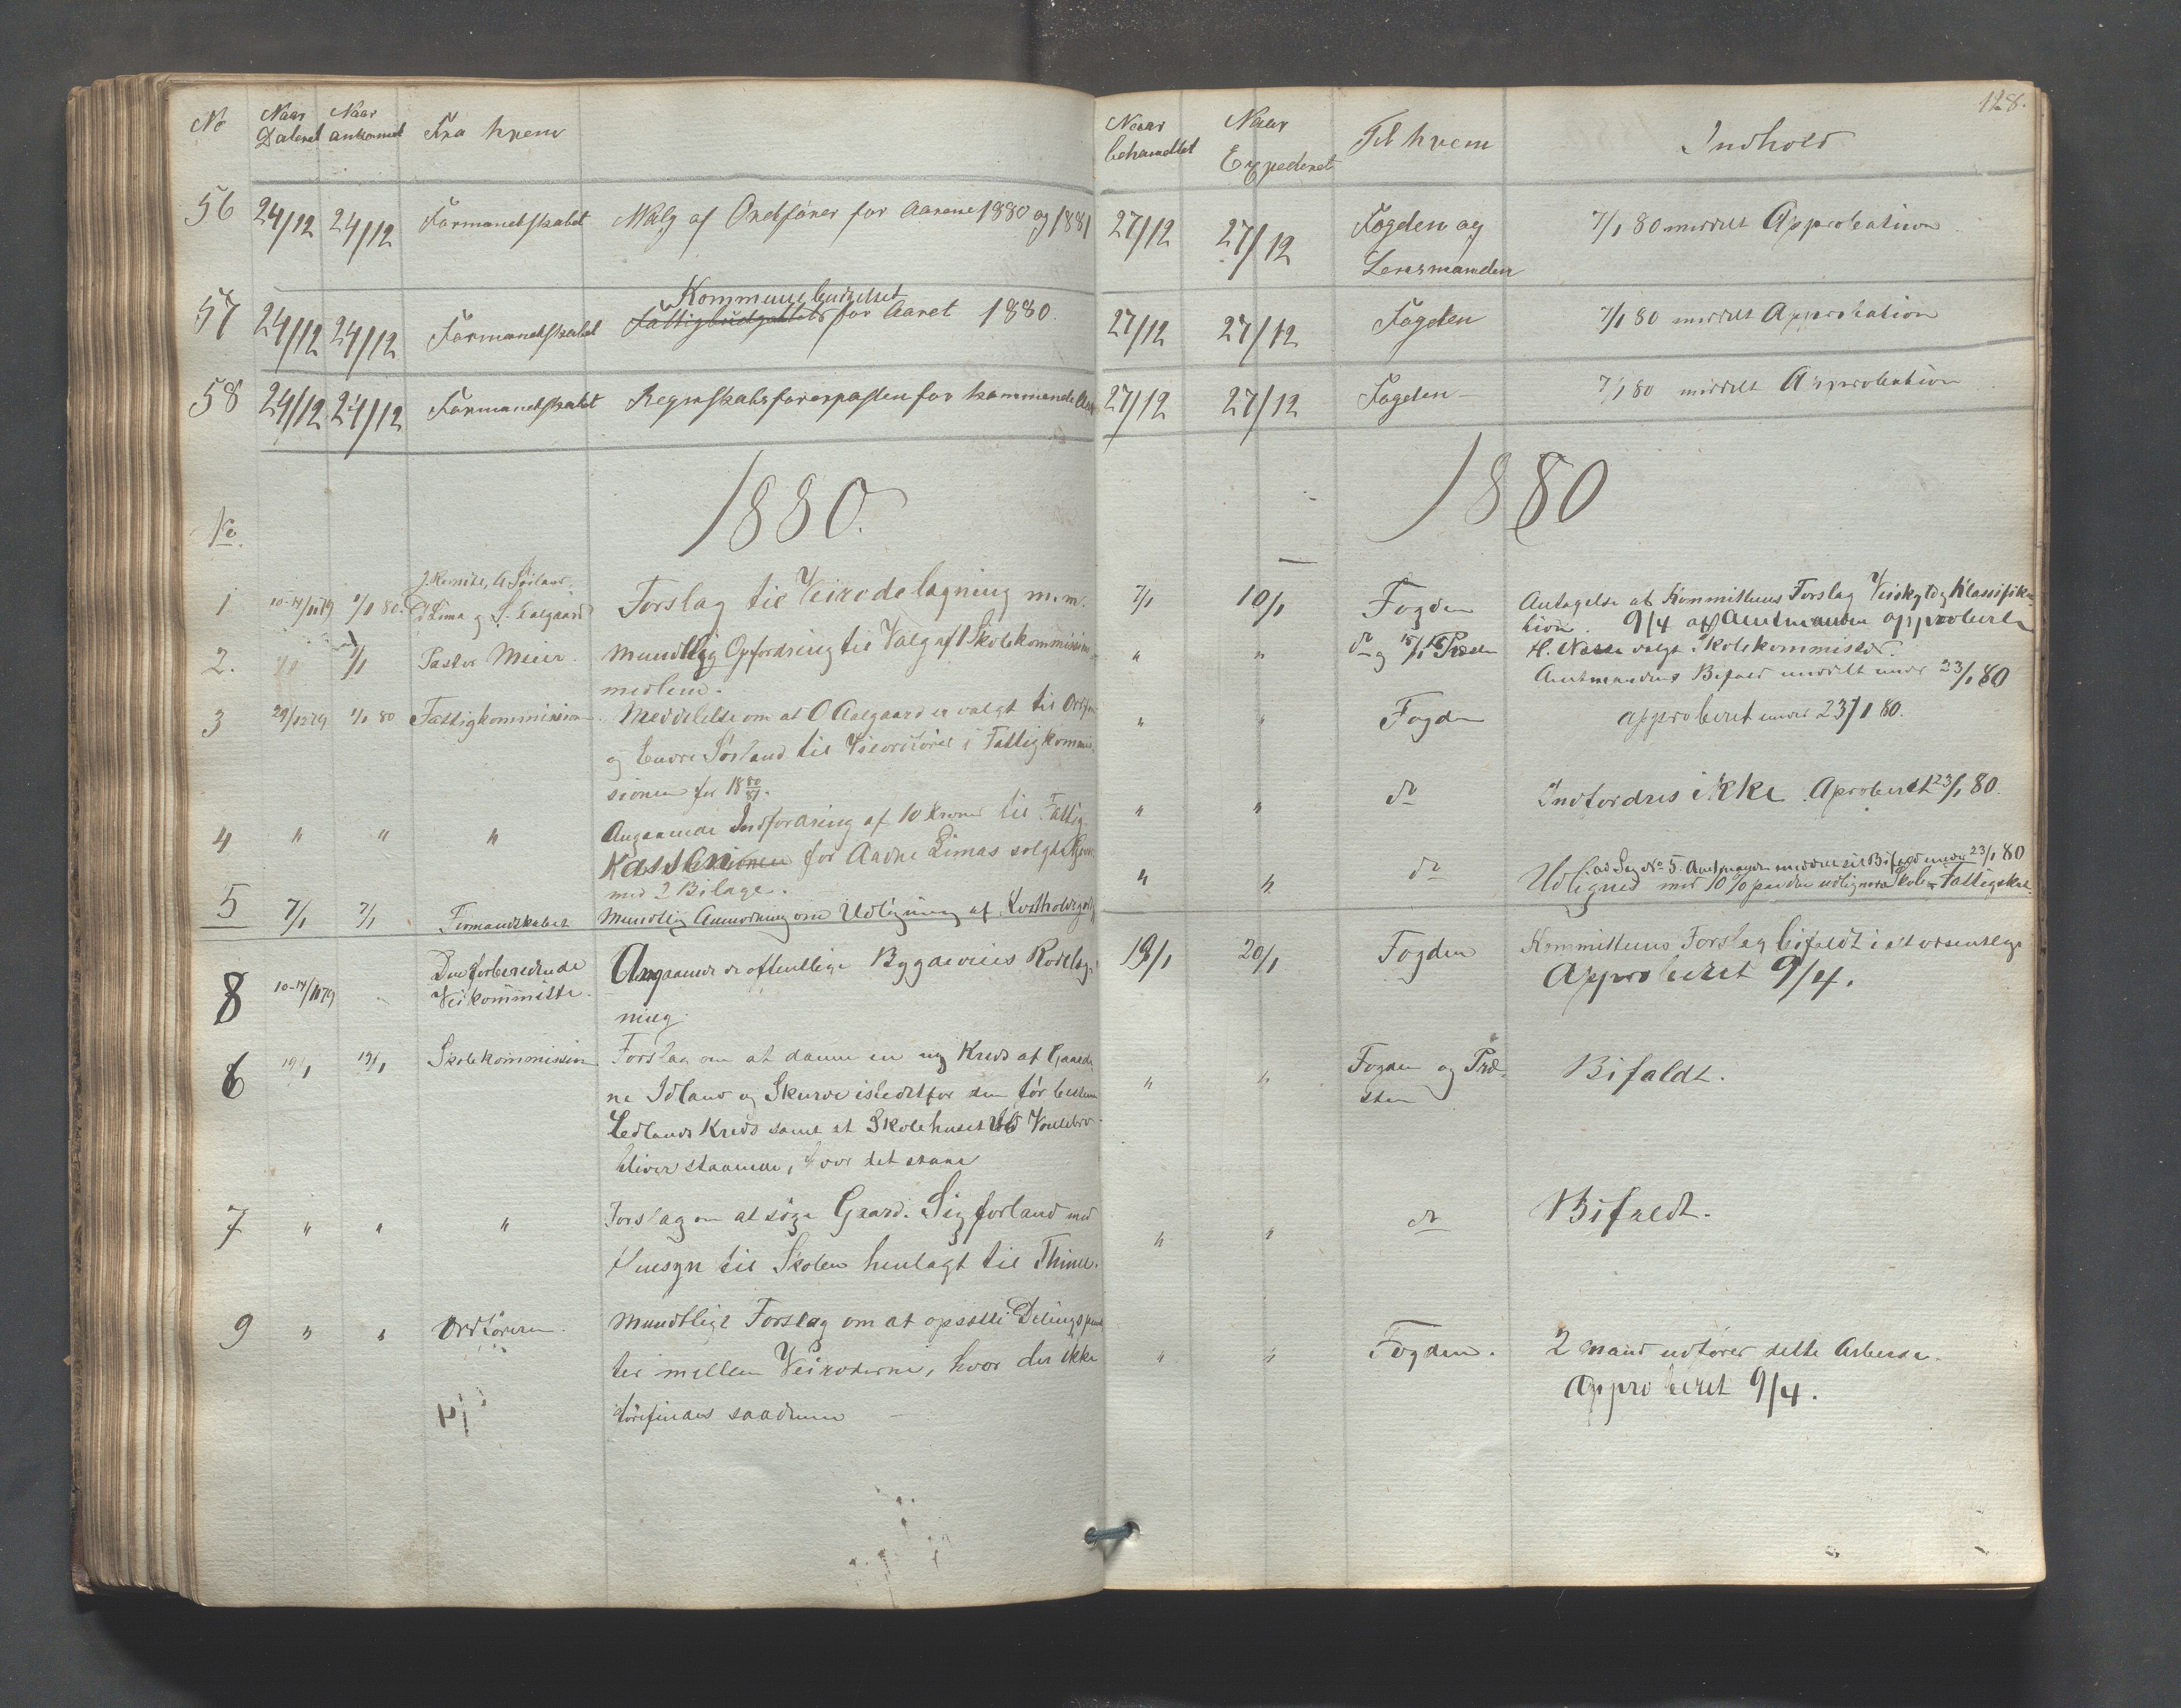 No
Naar Dateret
Naar ankommet
Fra hvem
56 24/12 24/12 Formandskabet Valg af Ordfører for Aarene 1880 og 1881
57 24/12 24/12 Formandskabet Kommunebudgettet
Fattigbudgettet for Aaret 1880.
58 24/12 24/12 Formandskabet Regnskabsførerposten for kommende Aar
1880.
No.
1 10-14/11 79 1/1 80.
Forslag til Veirodelagning m.m.
2. 1/1 Pastor Meier. Mundtlig Opfordring til Valg af 1 Skolekommissions
medlem.
3 29/12 79 1/1 80 Fattigkommissionen. Meddelelse om at O Aalgaard er valgt til Ordfører
og Endre Sørland til Viceordfører i Fattigkommis
sionen for 18 80/81.
4 " " " Angaaende Indfordring af 10 Kroner til Fattig
Kassen for Aadne Limas solgte
med 2 Bilage.
5 7/1 7/1 Formandskabet Mundtlig Anmodning om Udligning af
8 10-14/11 79 Den forberedende
Veikommitte.
Angaaende de offentlige Bygdeveies Rodelæg-
ning.
6 19/1 19/1 Skolekommission Forslag om at danne en ny Kreds af Gaarde
ne Idland og Skurve istedetfor den før bestemte
Ledlands Kreds samt at Skolehuset ved
bliver staaende, hvor det staar
7 " " " Forslag om at søge Gaard. Sigforland med
Hensyn til Skolen henlagt til Thime.
9 " " Ordføreren. Mundtligt Forslag om at opsætte Delingspunk
ter mellem Veiroderne, hvor der ikke
forefindes saadanne
128.
Naar behandlet
Naar Expederet
Til hvem
Indhold
27/12 27/12 Fogden og
Lensmanden
7/1 80 meddelt Approbation
27/12 27/12 Fogden 7/1 80 meddelt Approbation
27/12 27/12 Fogden 7/1 80 meddelt Approbation
1880
7/1 10/1 Fogden Antagelse af Kommitteens Forslag Veiskyld og Klassifika-
tion. 9/4 af Amtmanden approberet
" " do og 15/1 Præsten H. Næsse valgt Skolekommissær.
Amtmandens Bifald meddelt under 23/1 80
" " Fogden approberet under 23/1 80.
" " do Indfordres ikke. Aproberet 23/1 80.
ad Sag No 5. Amtmanden meddelt sit Bifald under 23/1 80
" " do Udlignes med 10 % paa den udlignede Skole- Fattigskat.
19/1 20/1 Fogden Kommitteens Forslag bifaldt i det væsentlige
Approberet 9/4.
" " Fogden og Præ-
sten
Bifaldt.
" " do Bifaldt.
" " Fogden. 2 Mand udfører dette Arbeide.
Approberet 9/4.